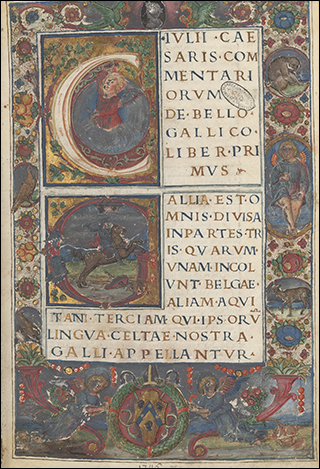 C·IVLII·CAE
SARIS·COM
MENTARI
ORVM
DE·BELLO·
GALLICO·
LIBER·PRI
MVS
GALLIA·EST·O
MNIS·DIVISA
INPARTES·TR
IS·QVARVM·
VNAM·INCOL
VNT·BELGAE·
ALIAM·AQVI
TANI·TERCIAM·QVI·IPSORV
LINGVA·CELTAE·NOSTRA·
GALLI·APPELLANTVR·